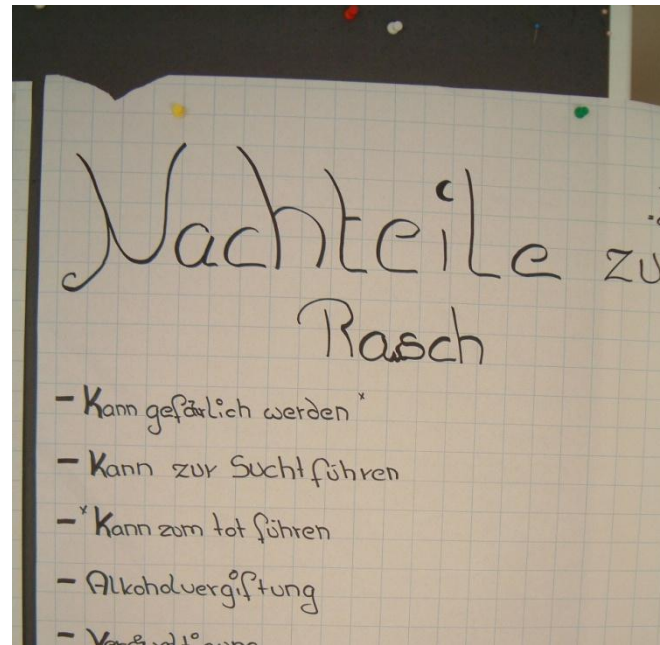 Nachteile zü
Rasch
- Kann gefärlich werden*
- Kann zur Sucht führen
-*Kann zum tot führen
- Alkoholvergiftung